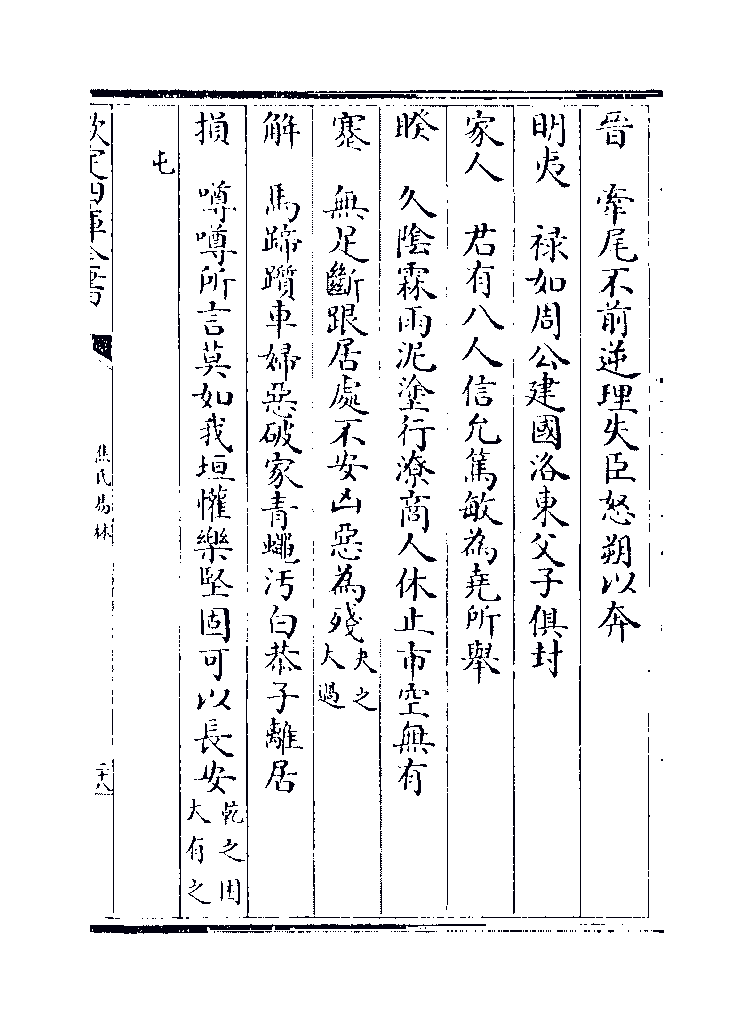 晉　牽尾不前逆理失臣怒朔以奔
明夷　禄如周公建國洛東父子俱封
家人　君有八人信允篤敏為堯所舉
睽　久陰霖雨泥塗行潦商人休止市空無有
蹇　無足斷跟居處不安凶惡為殘夬之大過
解　馬蹄躓車婦惡破家青蠅汚白恭子離居
損　噂噂所言莫如我垣懽樂堅固可以長安乾之困大有之
屯
欽定四庫全書
焦氏易林
二十八